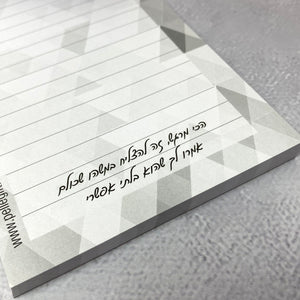 הכי מרגש זה להצליח במשהו שכולם
אמרו לך שהוא בלתי אפשרי